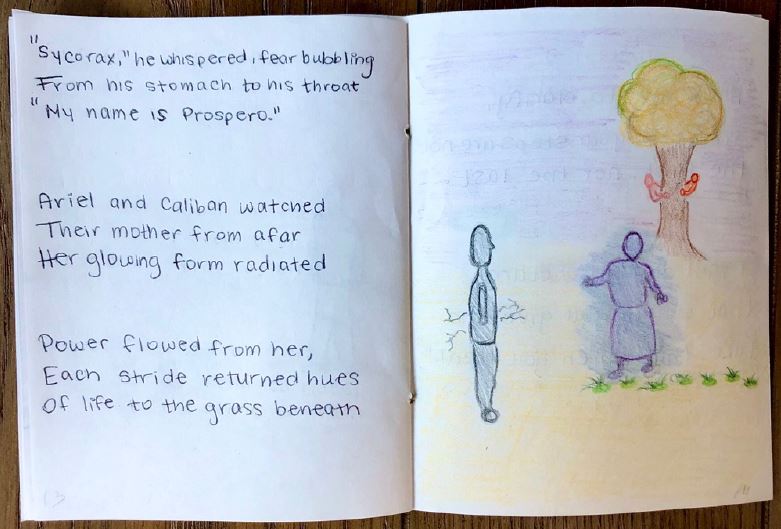 "Sycorax," he whispered, fear bubbling
From his stomach to his throat
"My name is Prospero."
Ariel and Caliban watched
Their mother from afar
Her glowing form radiated
Power flowed from her,
Each stride returned hues
Of life to the grass beneath
13